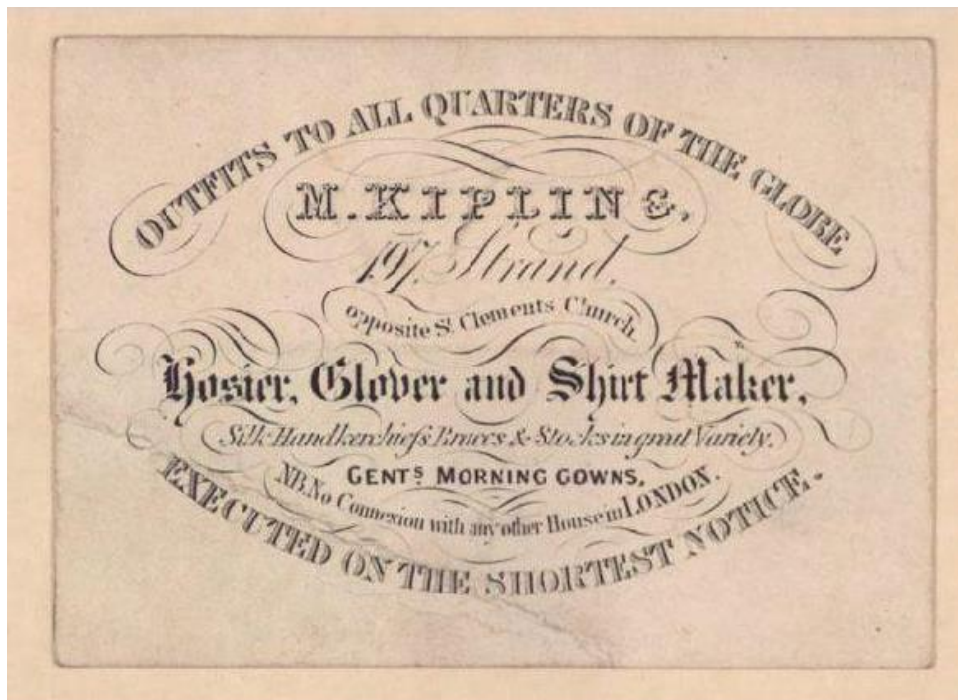 OUTFITS TO ALL QUARTERS OF THE GLOBE
M. KIPLING.
197, Strand,
opposite St Clements Church,
Hosier, Glover and Shirt Maker,
Silk Handkerchiefs Braces & Stocks in great Variety.
GENTS MORNING GOWNS,
NB. No Connexion with any other House in LONDON.
EXECUTED ON THE SHORTEST NOTICE.